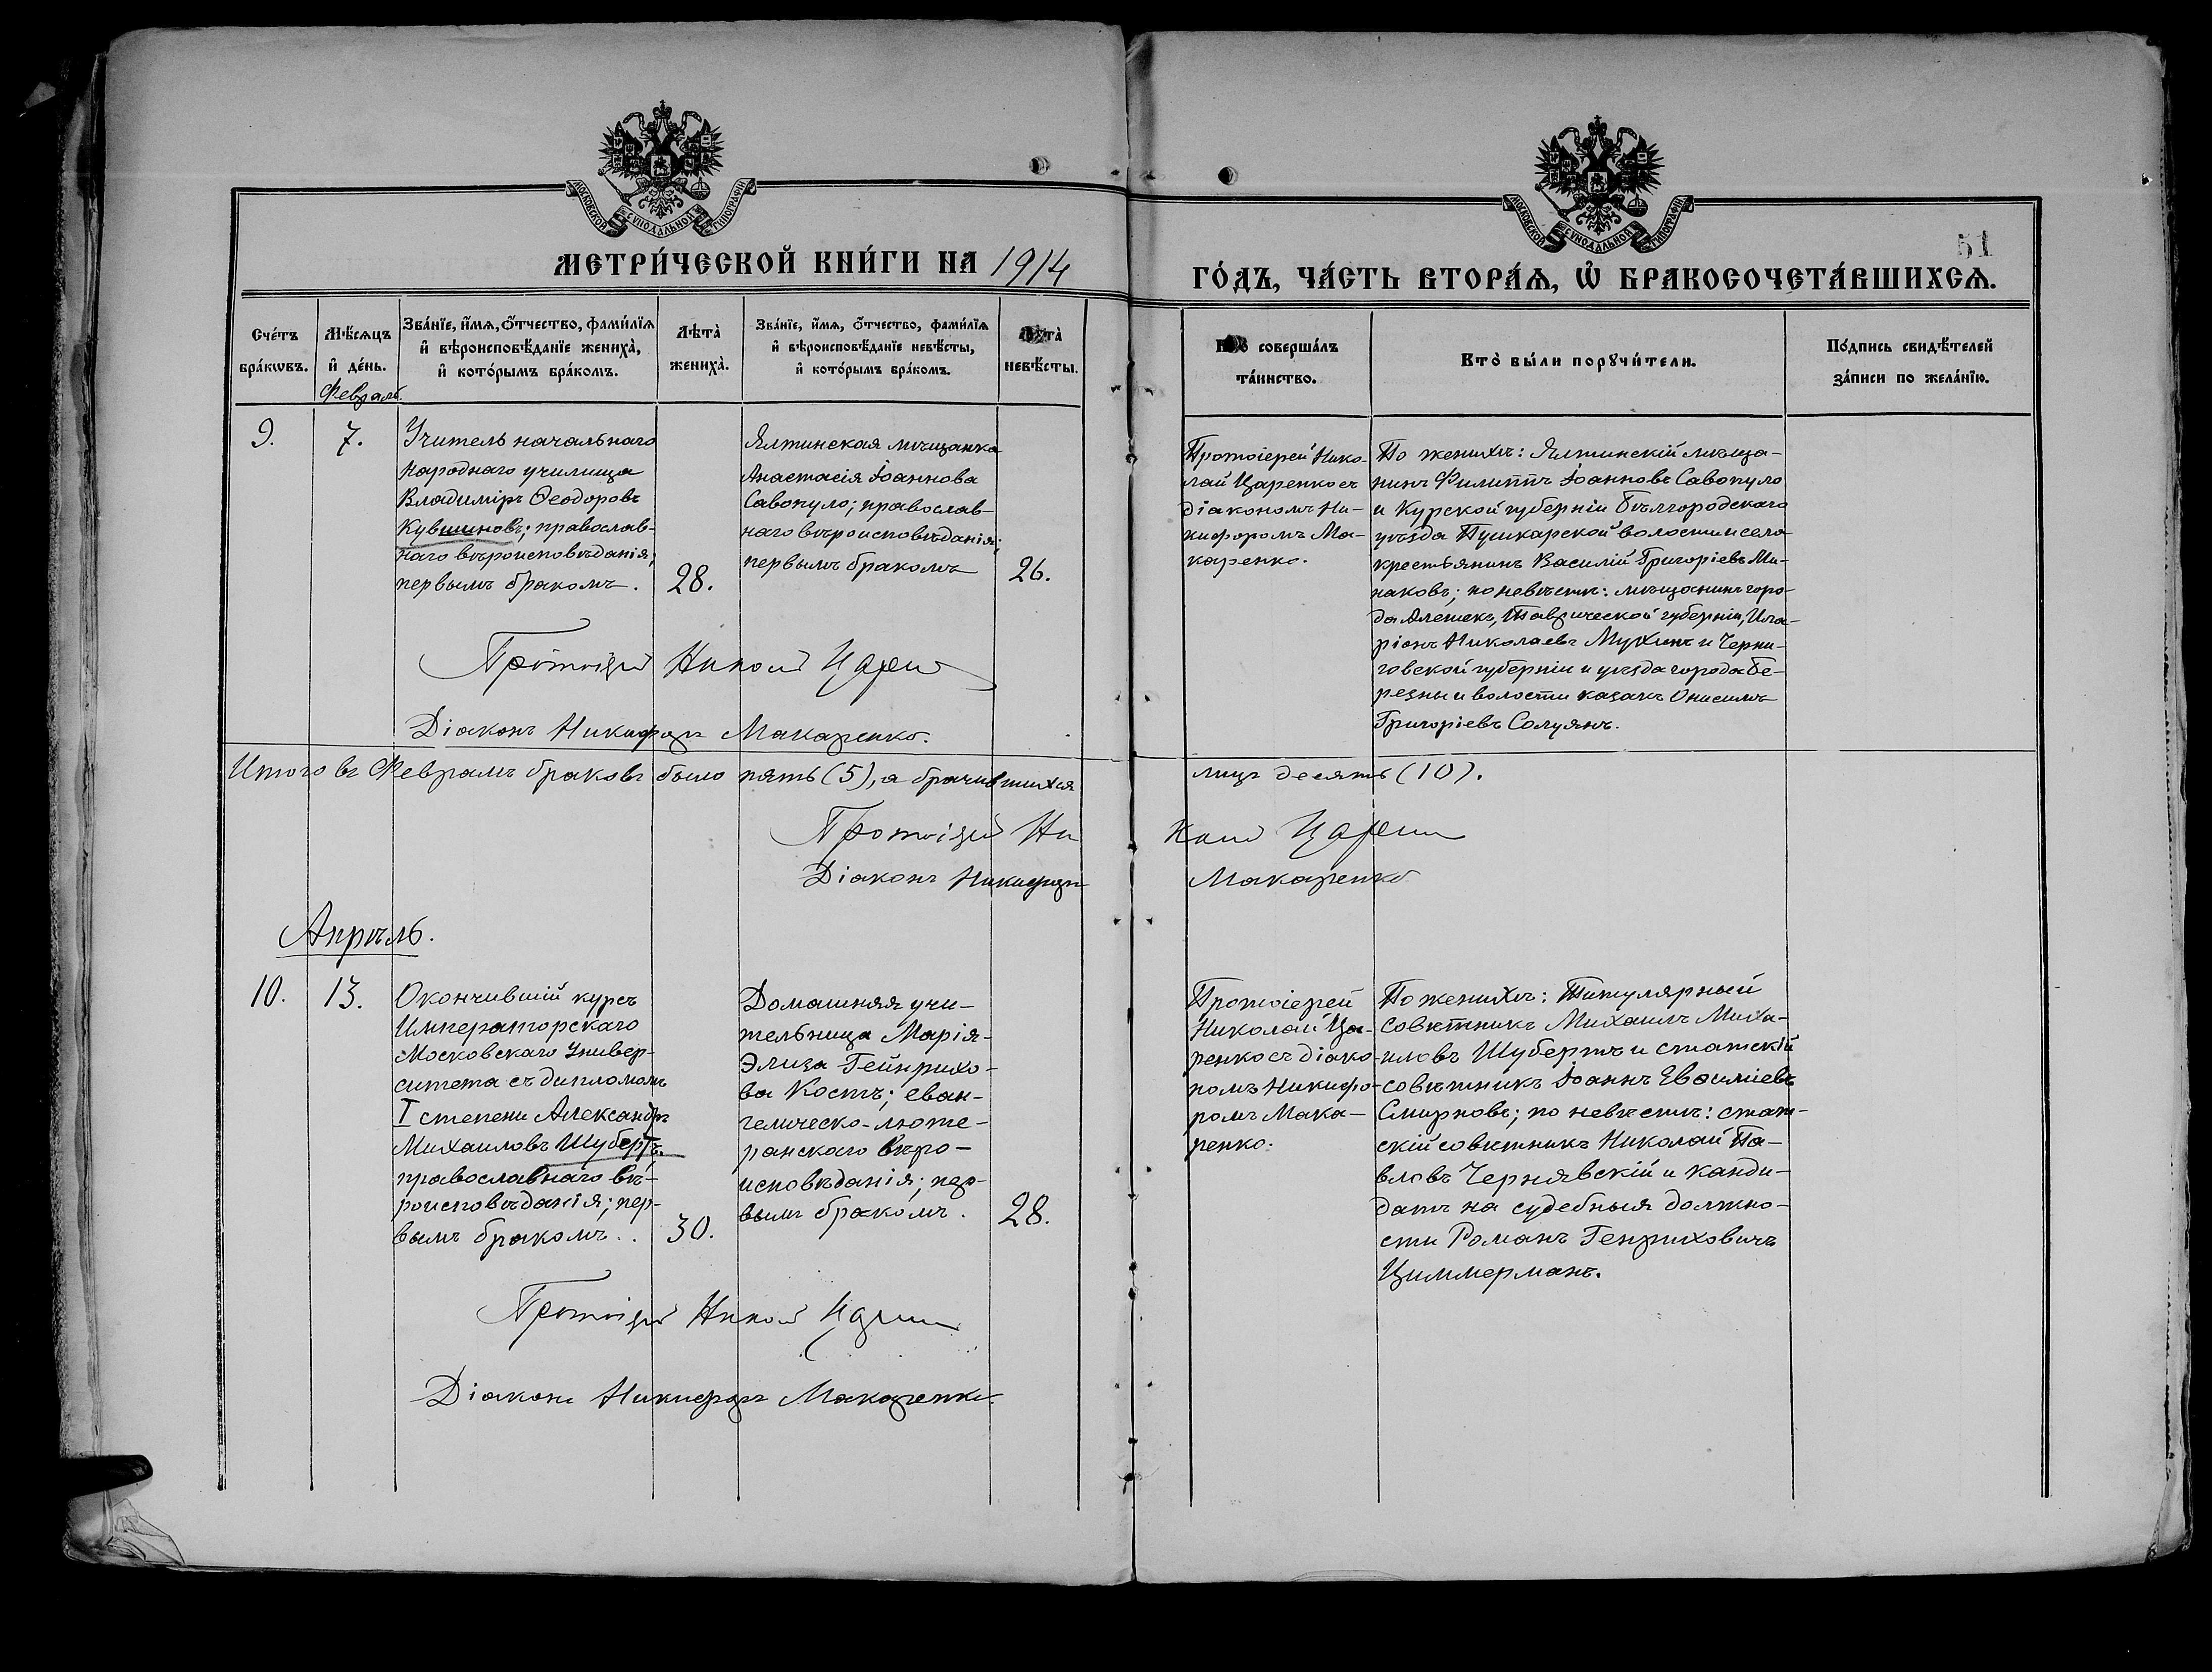 МОСКОВСКОЙ СѴНОДАЛЬНОЙ ТИПОГРАФІИ
МОСКОВСКОЙ СѴНОДАЛЬНОЙ ТИПОГРАФІИ
51
МЕТРИ́ЧЕСКОЙ КНИ́ГИ НА 1914
ГО́ДЪ, ЧА́СТЬ ВТОРА́Ѧ, Ѽ БРАКОСОЧЕТА́ВШИХСѦ.
Сче́тъ
бра́кѡвъ.
Мѣ́сѧцъ
и҆ де́нь.
Февраль.
Зва́нїе, и҆́мѧ, ѻ҆́тчество, фами́лїѧ
и҆ вѣроисповѣ́данїе жениха̀,
и҆ кото́рымъ бра́комъ.
Лѣта̀
жениха̀.
Зва́нїе, и҆́мѧ, ѻ҆́тчество, фами́лїѧ
и҆ вѣроисповѣ́данїе невѣ́сты,
и҆ кото́рымъ бра́комъ.
Лѣта̀
невѣ́сты.
Кто̀ соверша́лъ
та́инство.
Кто̀ бы́ли порꙋчи́тели.
По́дпись свидѣ́телей
за́писи по жела́нїю.
9.
7.
Учитель начальнаго
народнаго училища
Владиміръ Ѳеодоровъ
Кувшиновъ; православ-
наго вѣроисповѣданія;
первымъ бракомъ.
28.
Ялтинская мѣщанка
Анастасія Іоаннова
Савопуло; православ-
наго вѣроисповѣданія;
первымъ бракомъ
26.
Протоіерей Нико-
лай Царенко съ
діакономъ Ни-
кифоромъ Ма-
каренко.
По женихѣ: Ялтинскій мѣща-
нинъ Филиппъ Іоанновъ Савопуло
и Курской губерніи Бѣлгородскаго
уѣзда Пушкарской волости и села
крестьянинъ Василій Григоріевъ Ми-
наковъ; по невѣстѣ: мѣщанинъ горо-
да Алешекъ, Таврической губерніи, Ила-
ріонъ Николаевъ Мухинъ и Черни-
говской губерніи и уѣзда города Бе-
резны и волости казакъ Онисимъ
Григоріевъ Солуянъ.
Протоіерей Николай Царенко
Діаконъ Никифоръ Макаренко.
Итого въ Февралѣ браковъ было пять (5), а брачившихся лицъ десять (10).
Протоіерей Николай Царенко
Діаконъ Никифоръ Макаренко
Апрѣль.
10.
13.
Окончившій курсъ
Императорскаго
Московскаго Универ-
ситета съ дипломомъ
I степени Александръ
Михаиловъ Шубертъ.
православнаго вѣ-
роисповѣданія; пер-
вымъ бракомъ..
30.
Домашняя учи-
тельница Марія-
Элиза Гейнрихо-
ва Костъ; еван-
гелическо-люте-
ранскаго вѣро-
исповѣданія; пер-
вымъ бракомъ.
28.
Протоіерей
Николай Ца-
ренко съ діако-
номъ Никифо-
ромъ Мака-
ренко.
По женихѣ: Титулярный
совѣтникъ Михаилъ Миха-
иловъ Шубертъ и статскій
совѣтникъ Іоаннъ Евсиміевъ
Смирновъ; по невѣстѣ: стат-
скій совѣтникъ Николай Па-
вловъ Чернявскій и канди-
датъ на судебныя должно-
сти Романъ Генриховичъ
Циммерманъ.
Протоіерей Николай Царенко
Діаконъ Никифоръ Макаренко.